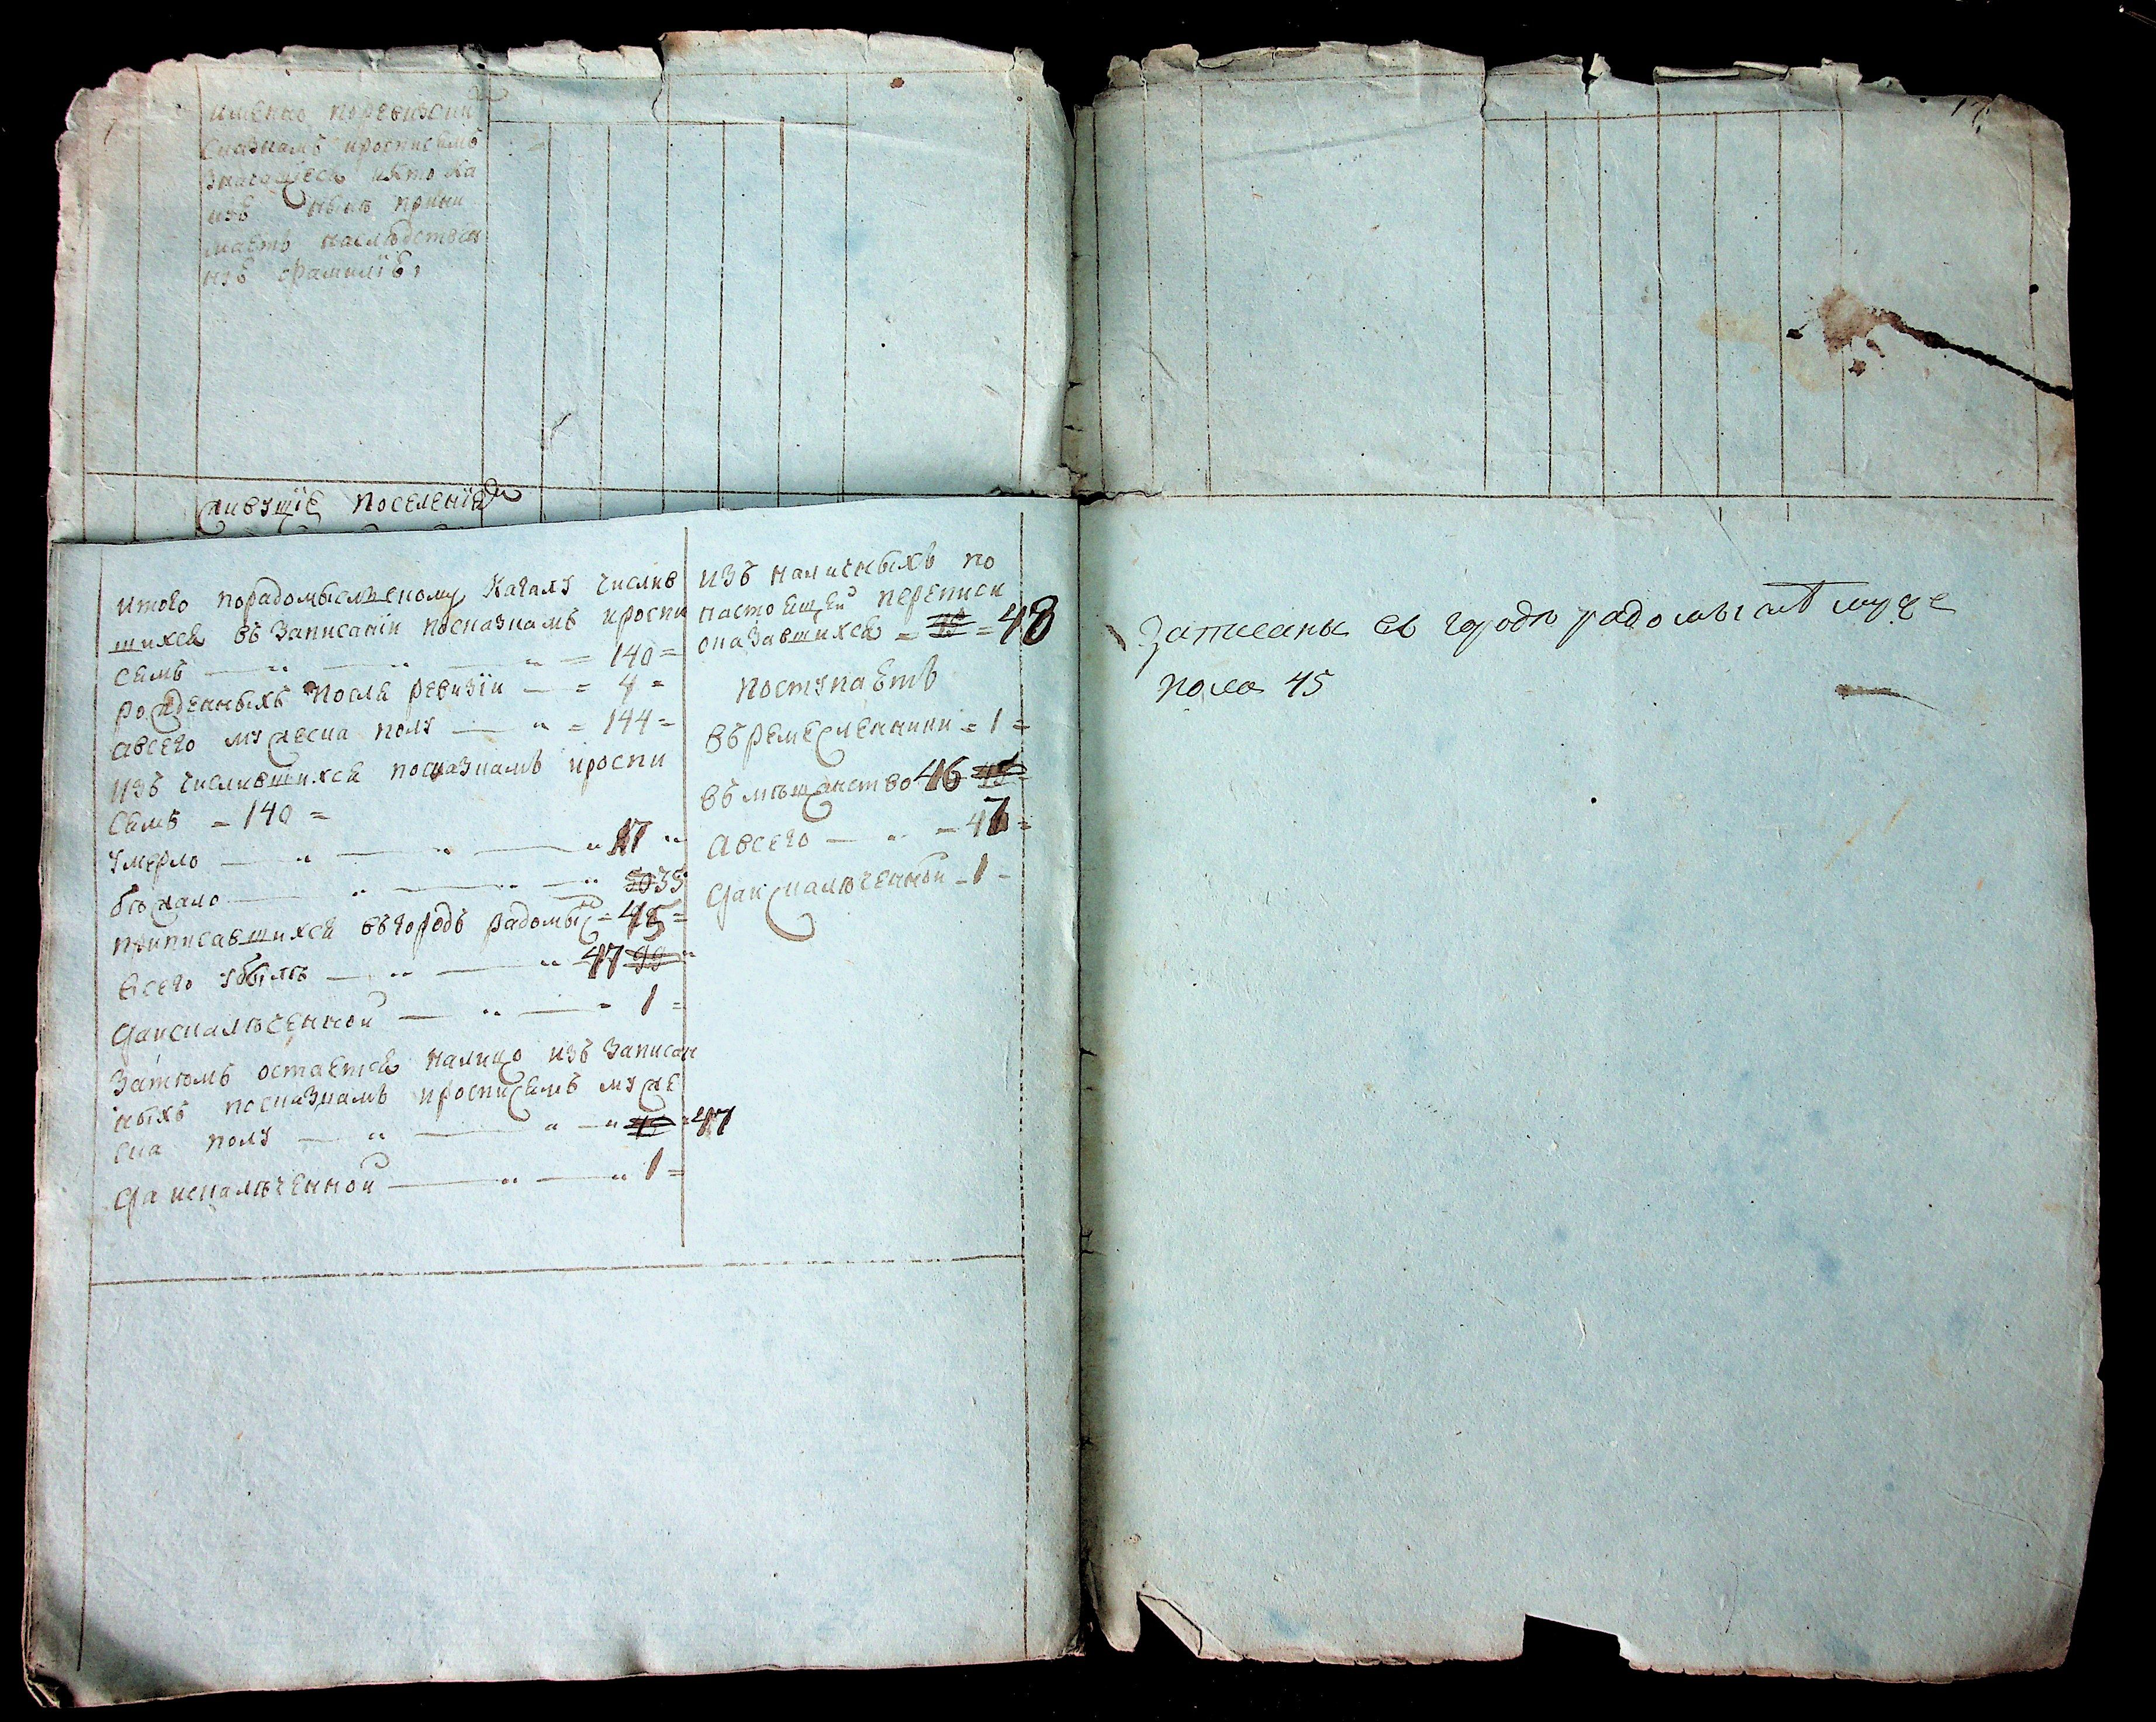 именно поревизски
сказкамъ иросписямъ
значащїеся икто ка
изъ ныхъ прини
маетъ наслѣдствен
нзъ фамилїѣ,
живущїе поселенїе
итого порадомысльскому кагалу числив
шихся въ записанїи посказкамъ ироспи
сямъ — „ — „ — „ = 140 =
рожденныхъ после ревизїи — = 4 =
авсего мужеска полу — „ = 144 =
изъ числившихся посказкамъ ироспи
сямъ = 140 =
умерло — „ — „ — „ 17 „
бѣжало — „ — „ — „ 35
приписавшихся въгородъ радомыс = 45 =
всего убылъ — „ — „ 47 99 „
даискалѣченной — „ — „ 1 =
затѣмъ остается налицо изъ записан
ныхъ посказкамъ иросписямъ муже
ска полу — „ — „ — „ 46 = 47
даискалѣченной — „ — „ 1 =
изъ наличныхъ по
настоещей переписи
оказавшихся = = 48
поступаетъ
въ ремесленники = 1 =
въ мѣщанство 46 45 =
авсего — „ — 47 =
даискалѣченной = 1 =
17
записаны въ городѣ радомыслѣ муже
пола 45